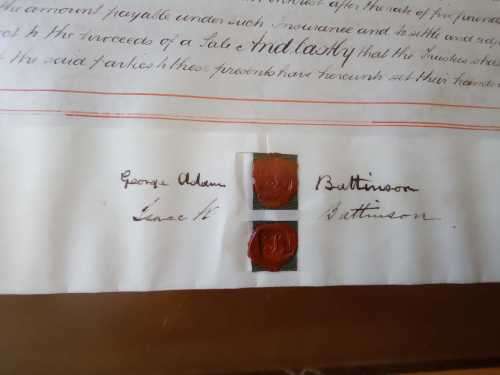 the amount payable under such Insurance and to settle and
to the proceeds of a Sale And lastly that the Trustees
the said parties to these presents have hereunto set their hands
George Adam Battinson
Isaac W Battinson